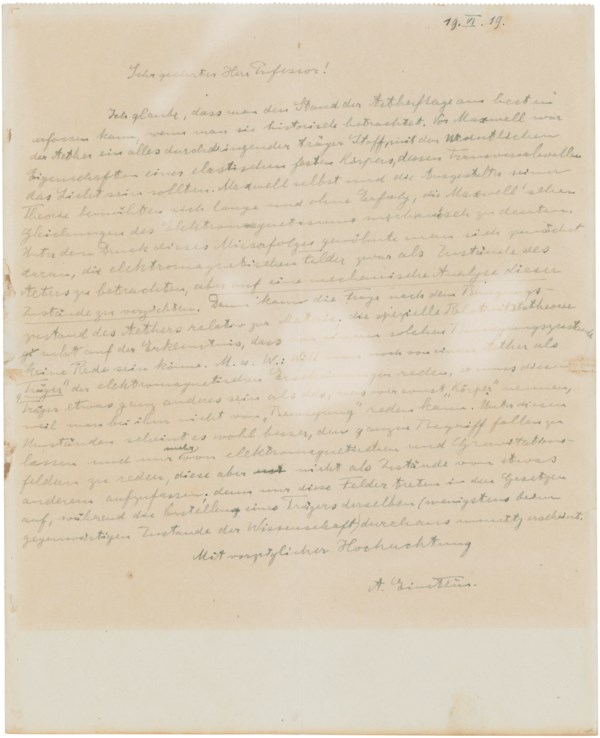 19. VI. 19.
Sehr geehrter Herr Professor!
Ich glaube, dass man den Stand der Aetherfrage am besten
erfassen kann, wenn man sie historisch betrachtet. Vor Maxwell war
der Aether ein alles durchdringender träger Stoff mit den wesentlichen
Eigenschaften eines elastischen festen Körpers, dessen Transversalwellen
das Licht sein sollten. Maxwell selbst und die Ausgestalter seiner
Theorie bemühten sich lange und ohne Erfolg, die Maxwell'schen
Gleichungen des Elektromagnetismus mechanisch zu deuten.
Unter dem Druck dieses Misserfolges gewöhnte man sich zunächst
daran, die elektromagnetischen Felder zwar als Zustände des
Aethers zu betrachten, aber auf eine mechanische Analyse dieser
Zustände zu verzichten. kann die Frage nach dem Bewegungs-
zustand des Aethers relativ zur Materie, die spezielle Relativitätstheorie
ist auf der Erkenntnis, dass von einem solchen Bewegungszustande
keine Rede sein könne. M. a. W.: Will man noch von einem Aether als
"Träger" der elektromagnetischen reden, so muss dieser
Träger etwas ganz anderes sein als das, was wir sonst "Körper" nennen,
weil man bei ihm nicht von "Bewegung" reden kann. Unter diesen
Umständen scheint es wohl besser, den ganzen Begriff fallen zu
lassen und nur mehr von elektromagnetischen und Gravitations-
feldern zu reden, diese aber nicht als Zustände von etwas
anderem aufzufassen; denn nur diese Felder treten in den Gesetzen
auf, während das Erstellen eines Trägers derselben (wenigstens beim
gegenwärtigen Zustande der Wissenschaft) durchaus unnütz erscheint.
Mit vorzüglicher Hochachtung
A. Einstein.